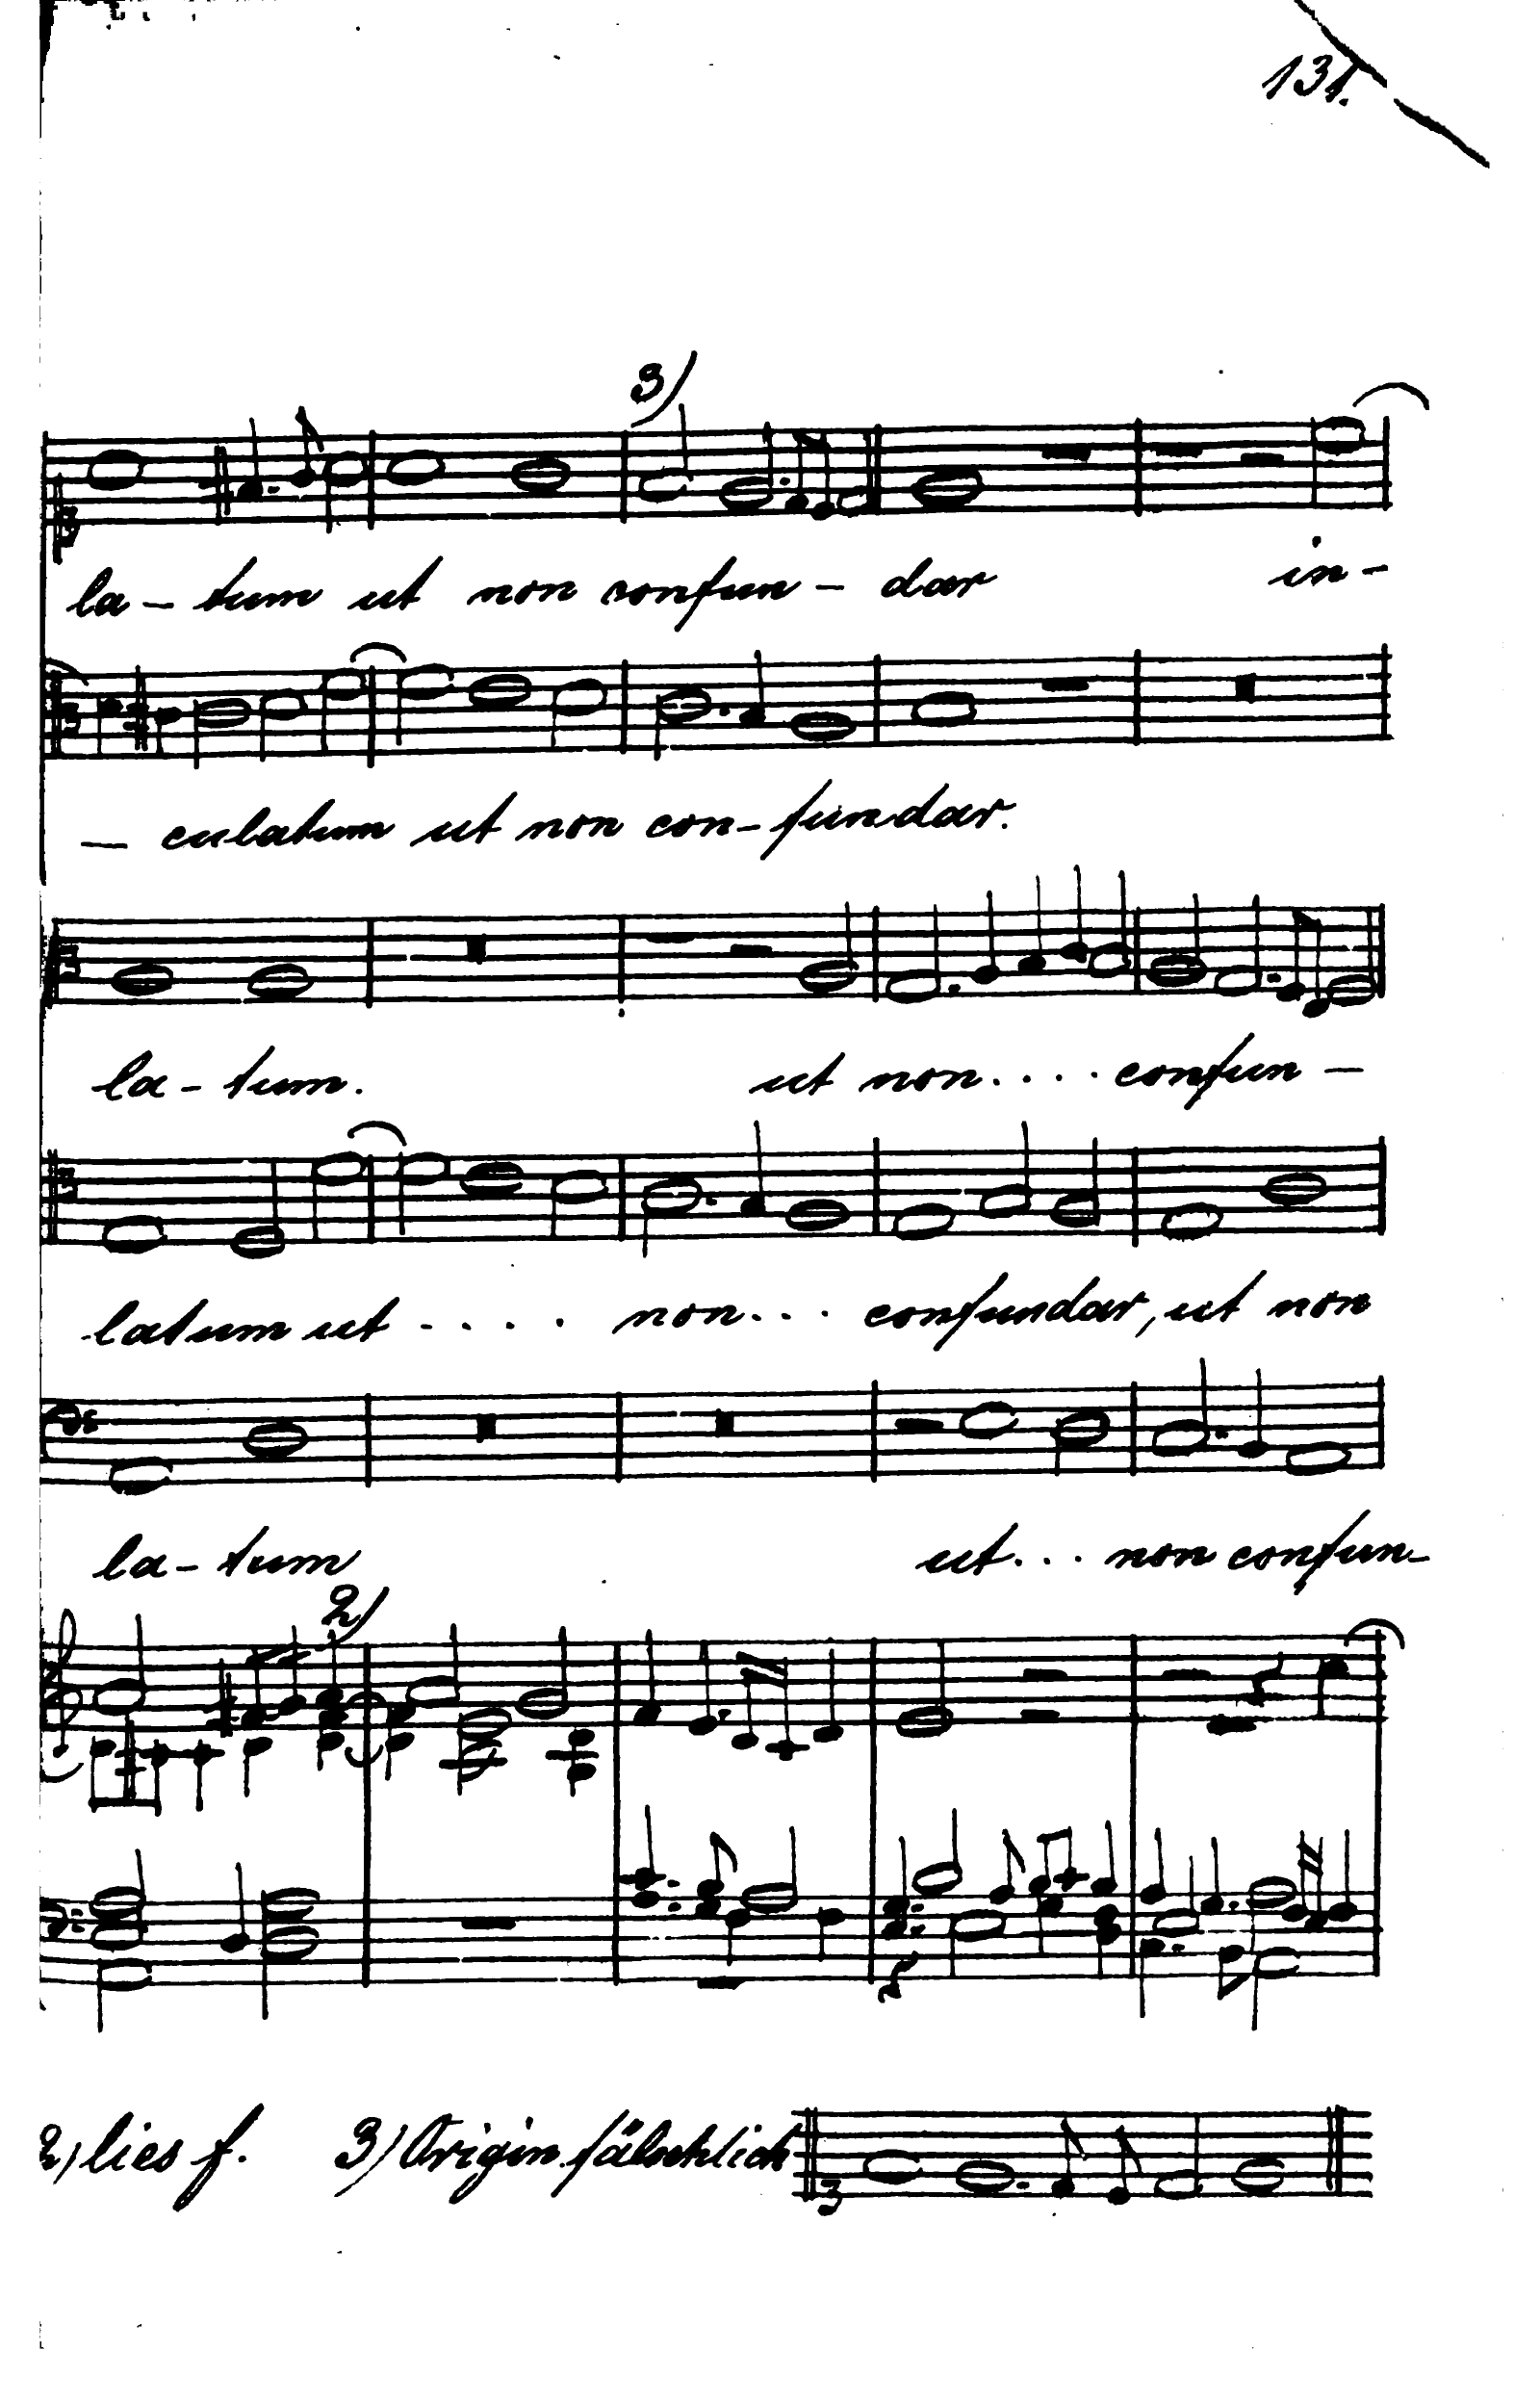 131.
3)
la - tum ut non confun - dar in -
- culatum ut non con - fundar.
la - tum. ut non .... confun -
latum ut .... non ... confundar, ut non
la - tum ut ... non confun -
2)
2) lies f. 3) Origin. fälschlich